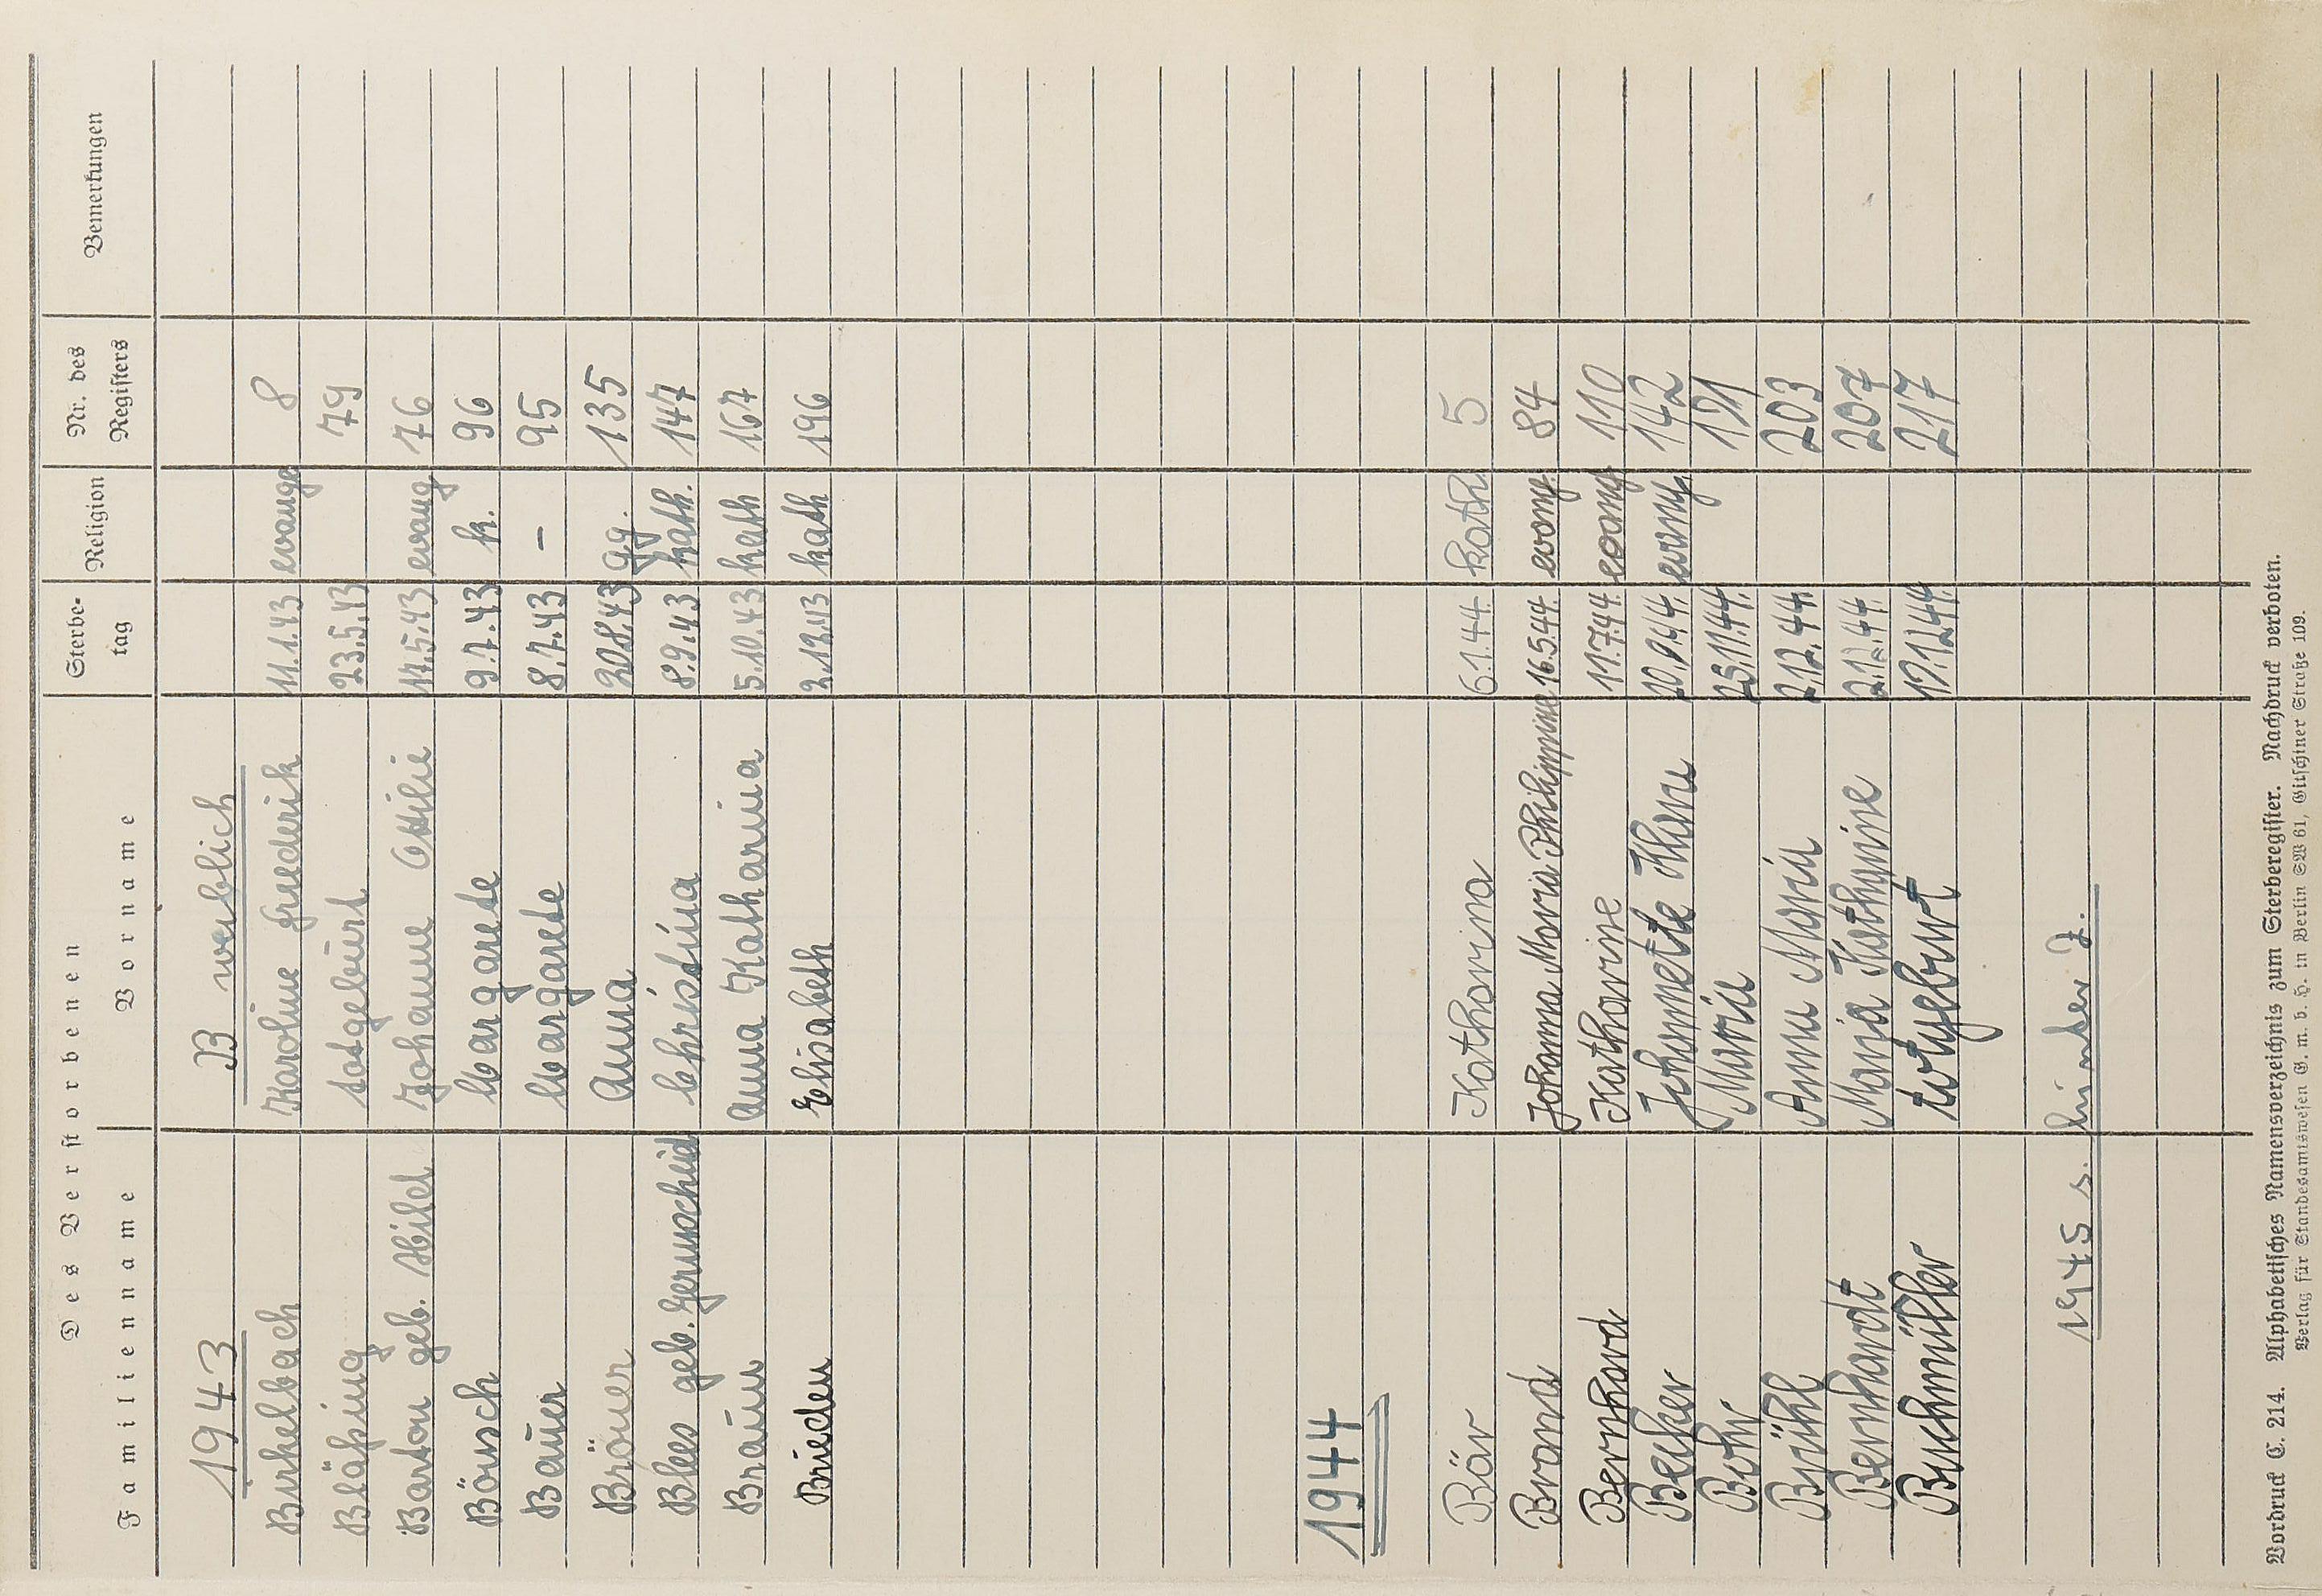 Des Verstorbenen
Familienname Vorname Sterbe- tag Religion Nr. des Registers Bemerkungen
1943 B weiblich
Birkelbach Karoline Friederik 11.1.43 evange 8
Bläsing totgeburt 23.5.43 79
Barton geb. Hild Johanne Ottilie 17.5.43 evang 76
Bönsch Margarete 9.7.43 k. 96
Bauer Margarete 8.7.43 – 95
Bröuer Anna 20.8.43 gg. 135
Blees geb. Gerunscheid Christina 8.9.43 kath. 147
Braun Anna Katharina 5.10.43 kath 167
Brieden Elisabeth 2.12.43 kath 196
1944
Bär Katharina 6.1.44. kath 5
Brand Johanna Maria Philippine 16.5.44. evang. 84
Bernhard Katharine 11.7.44. evang 110
Becker Johannette Klara 10.9.44. evang 142
Bohr Maria 25.11.44. 191
Brühl Anna Maria 2.12.44. 203
Bernhardt Maria Kathyrine 2.12.44. 207
Buchmüller totgeburt 17.12.44. 217
1945 s.
Vordruck C. 214. Alphabetisches Namensverzeichnis zum Sterberegister. Nachdruck verboten.
Verlag für Standesamtswesen G. m. b. H. in Berlin SW 61, Gitschiner Straße 109.